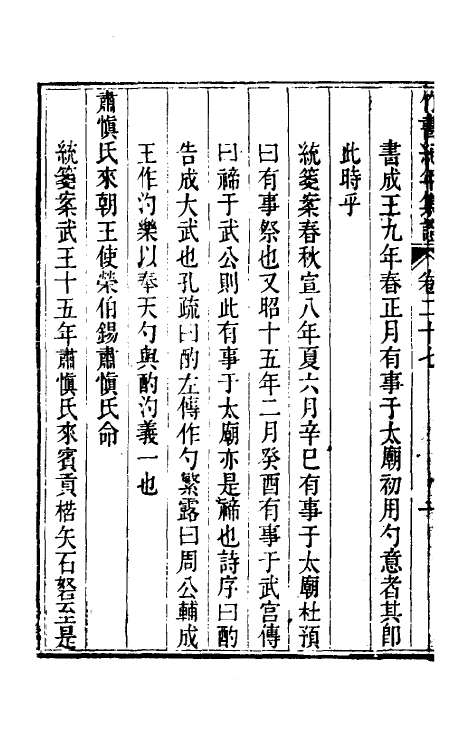 竹書紀年集證 卷二十七
書成王九年春正月有事于太廟初用勺意者其即
此時乎
統箋案春秋宣八年夏六月辛巳有事于太廟杜預
曰有事祭也又昭十五年二月癸酉有事于武宮傳
曰禘于武公則此有事于太廟亦是禘也詩序曰酌
告成大武也孔疏曰酌左傳作勺繁露曰周公輔成
王作汋樂以奉天勺與酌汋義一也
肅愼氏來朝王使榮伯錫肅愼氏命
統箋案武王十五年肅愼氏來賓貢楛矢石砮至是